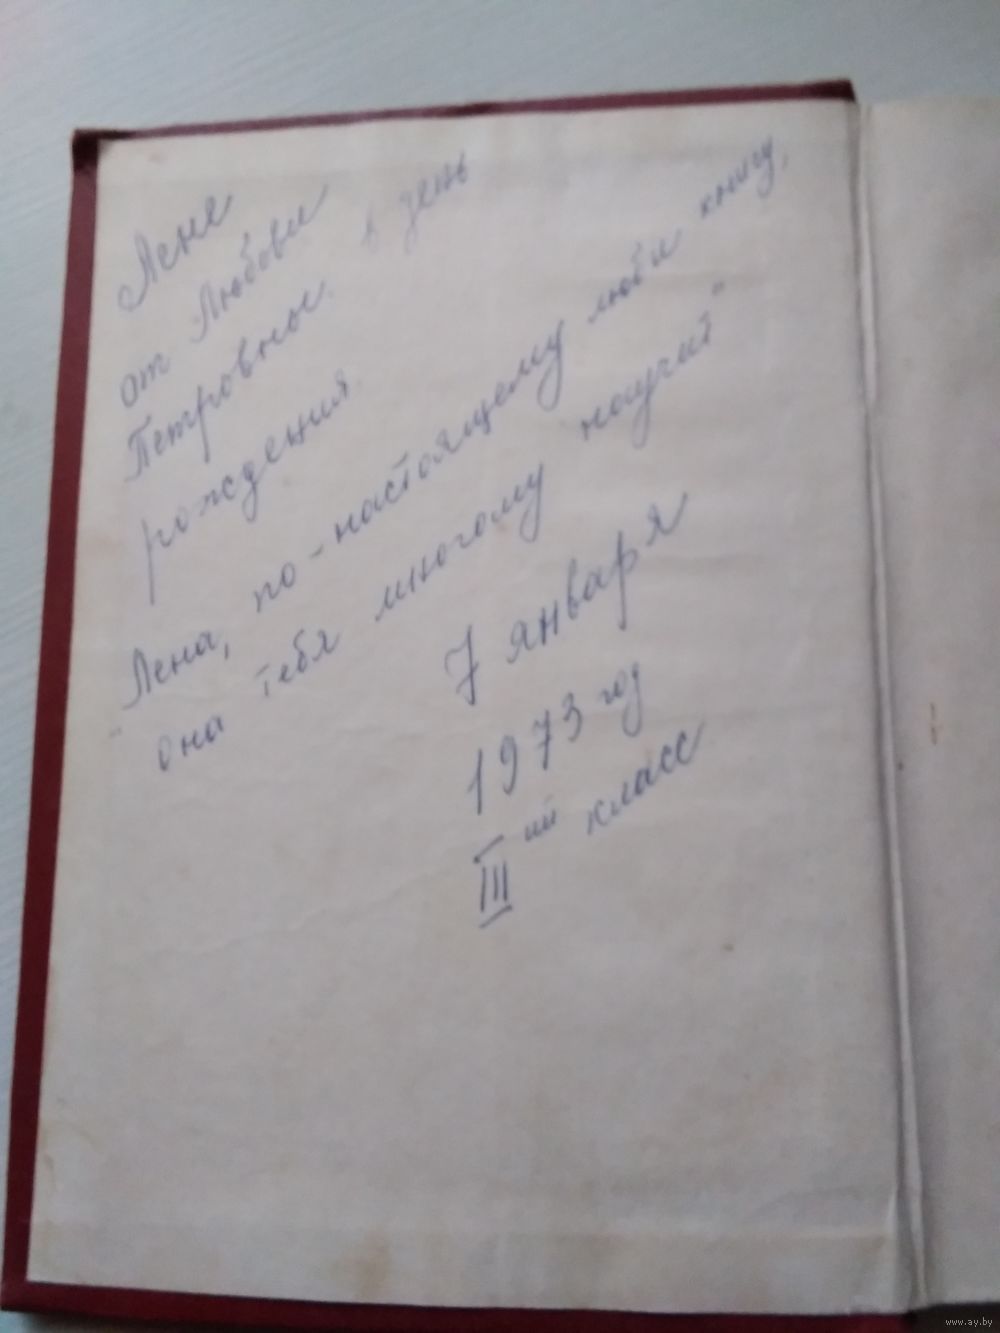 Лене
от Любови
Петровны. в день
рождения.
"Лена, по-настоящему люби книгу,
она тебя многому научит"
7 января
1973 год
III ий класс
www.ay.by